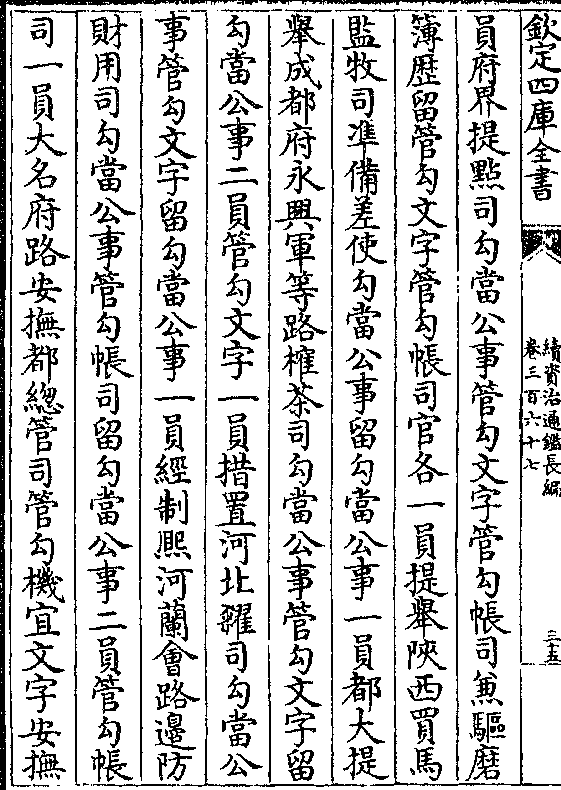 欽定四庫全書
續資治通鑑長編
卷三百六十七
三十五
員府界提點司勾當公事管勾文字管勾帳司兼驅磨
簿歴留管勾文字管勾帳司官各一員提舉陜西買馬
監牧司凖備差使勾當公事留勾當公事一員都大提
舉成都府永興軍等路榷茶司勾當公事管勾文字留
勾當公事二員管勾文字一員措置河北糴司勾當公
事管勾文字留勾當公事一員經制熈河蘭會路邊防
財用司勾當公事管勾帳司留勾當公事二員管勾帳
司一員大名府路安撫都緫管司管勾機宜文字安撫